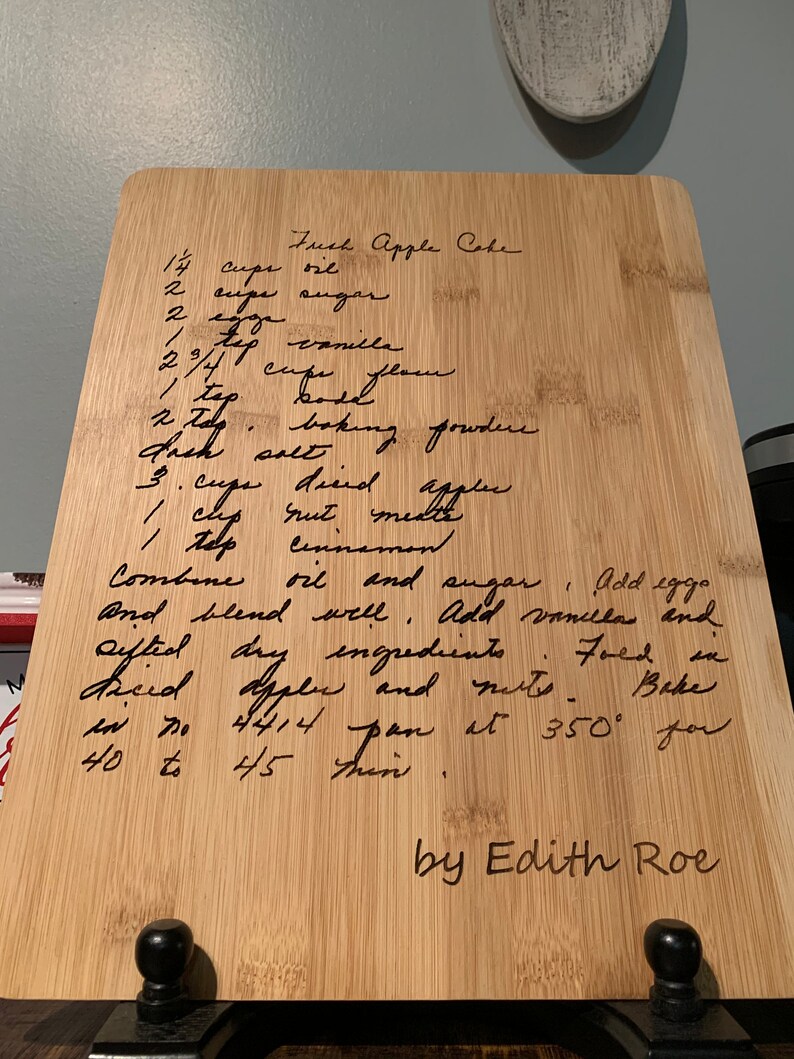 Fresh Apple Cake
1 1/4 cups oil
2 cups sugar
2 eggs
1 tsp vanilla
2 3/4 cups flour
1 tsp soda
2 tsp. baking powder
dash salt
3. cups diced apples
1 cup nut meats
1 tsp cinnamon
Combine oil and sugar, Add eggs
and blend well. Add vanilla and
sifted dry ingredients. Fold in
diced apples and nuts. Bake
in no 4414 pan at 350° for
40 to 45 min.
by Edith Roe